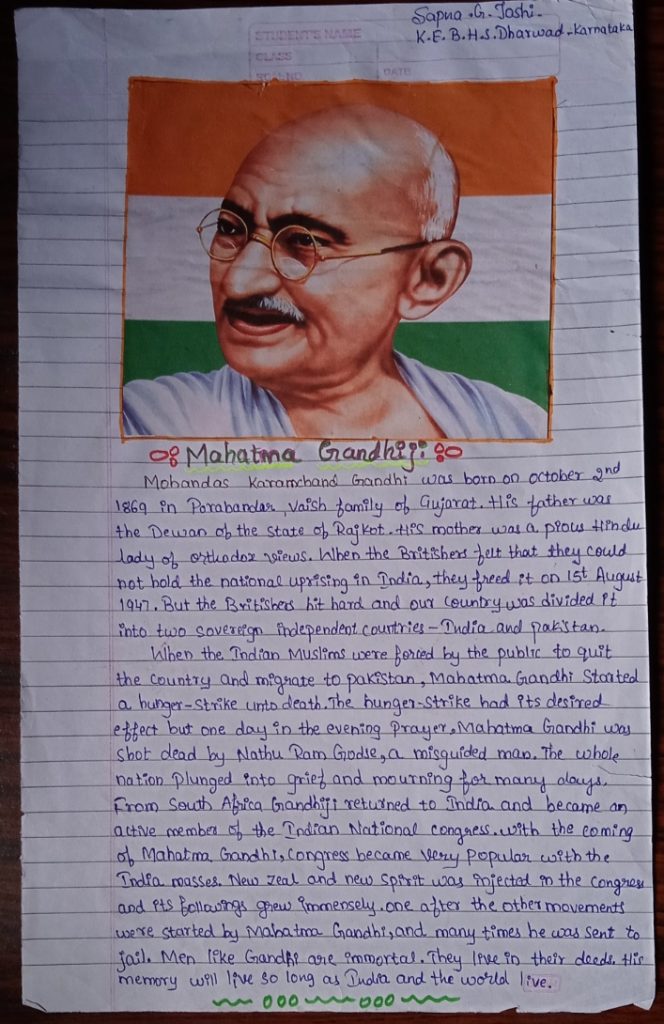 Sapna.G.Joshi.
K.E.B.H.S.Dharwad-Karnataka
STUDENT'S NAME
CLASS
DATE
Mahatma Gandhiji
Mohandas Karamchand Gandhi was born on october 2nd
1869 in Porabandar, Vaish family of Gujarat. His father was
the Dewan of the State of Rajkot. His mother was a pious Hindu
lady of orthodox views. When the Britishers felt that they could
not hold the national uprising in India, they freed it on 15th August
1947. But the Britishers hit hard and our country was divided it
into two sovereign independent countries - India and pakistan.
When the Indian Muslims were forced by the public to quit
the country and migrate to pakistan, Mahatma Gandhi started
a hunger-strike unto death. The hunger-strike had its desired
effect but one day in the evening prayer, Mahatma Gandhi was
shot dead by Nathu Ram Godse, a misguided man. The whole
nation plunged into grief and mourning for many days.
From South Africa Gandhiji returned to India and became an
active member of the Indian National congress. with the coming
of Mahatma Gandhi, Congress became very popular with the
India masses. New zeal and new spirit was injected in the congress
and its followings grew immensely. one after the other movements
were started by Mahatma Gandhi, and many times he was sent to
jail. Men like Gandhi are immortal. They live in their deeds. His
memory will live so long as India and the world live.